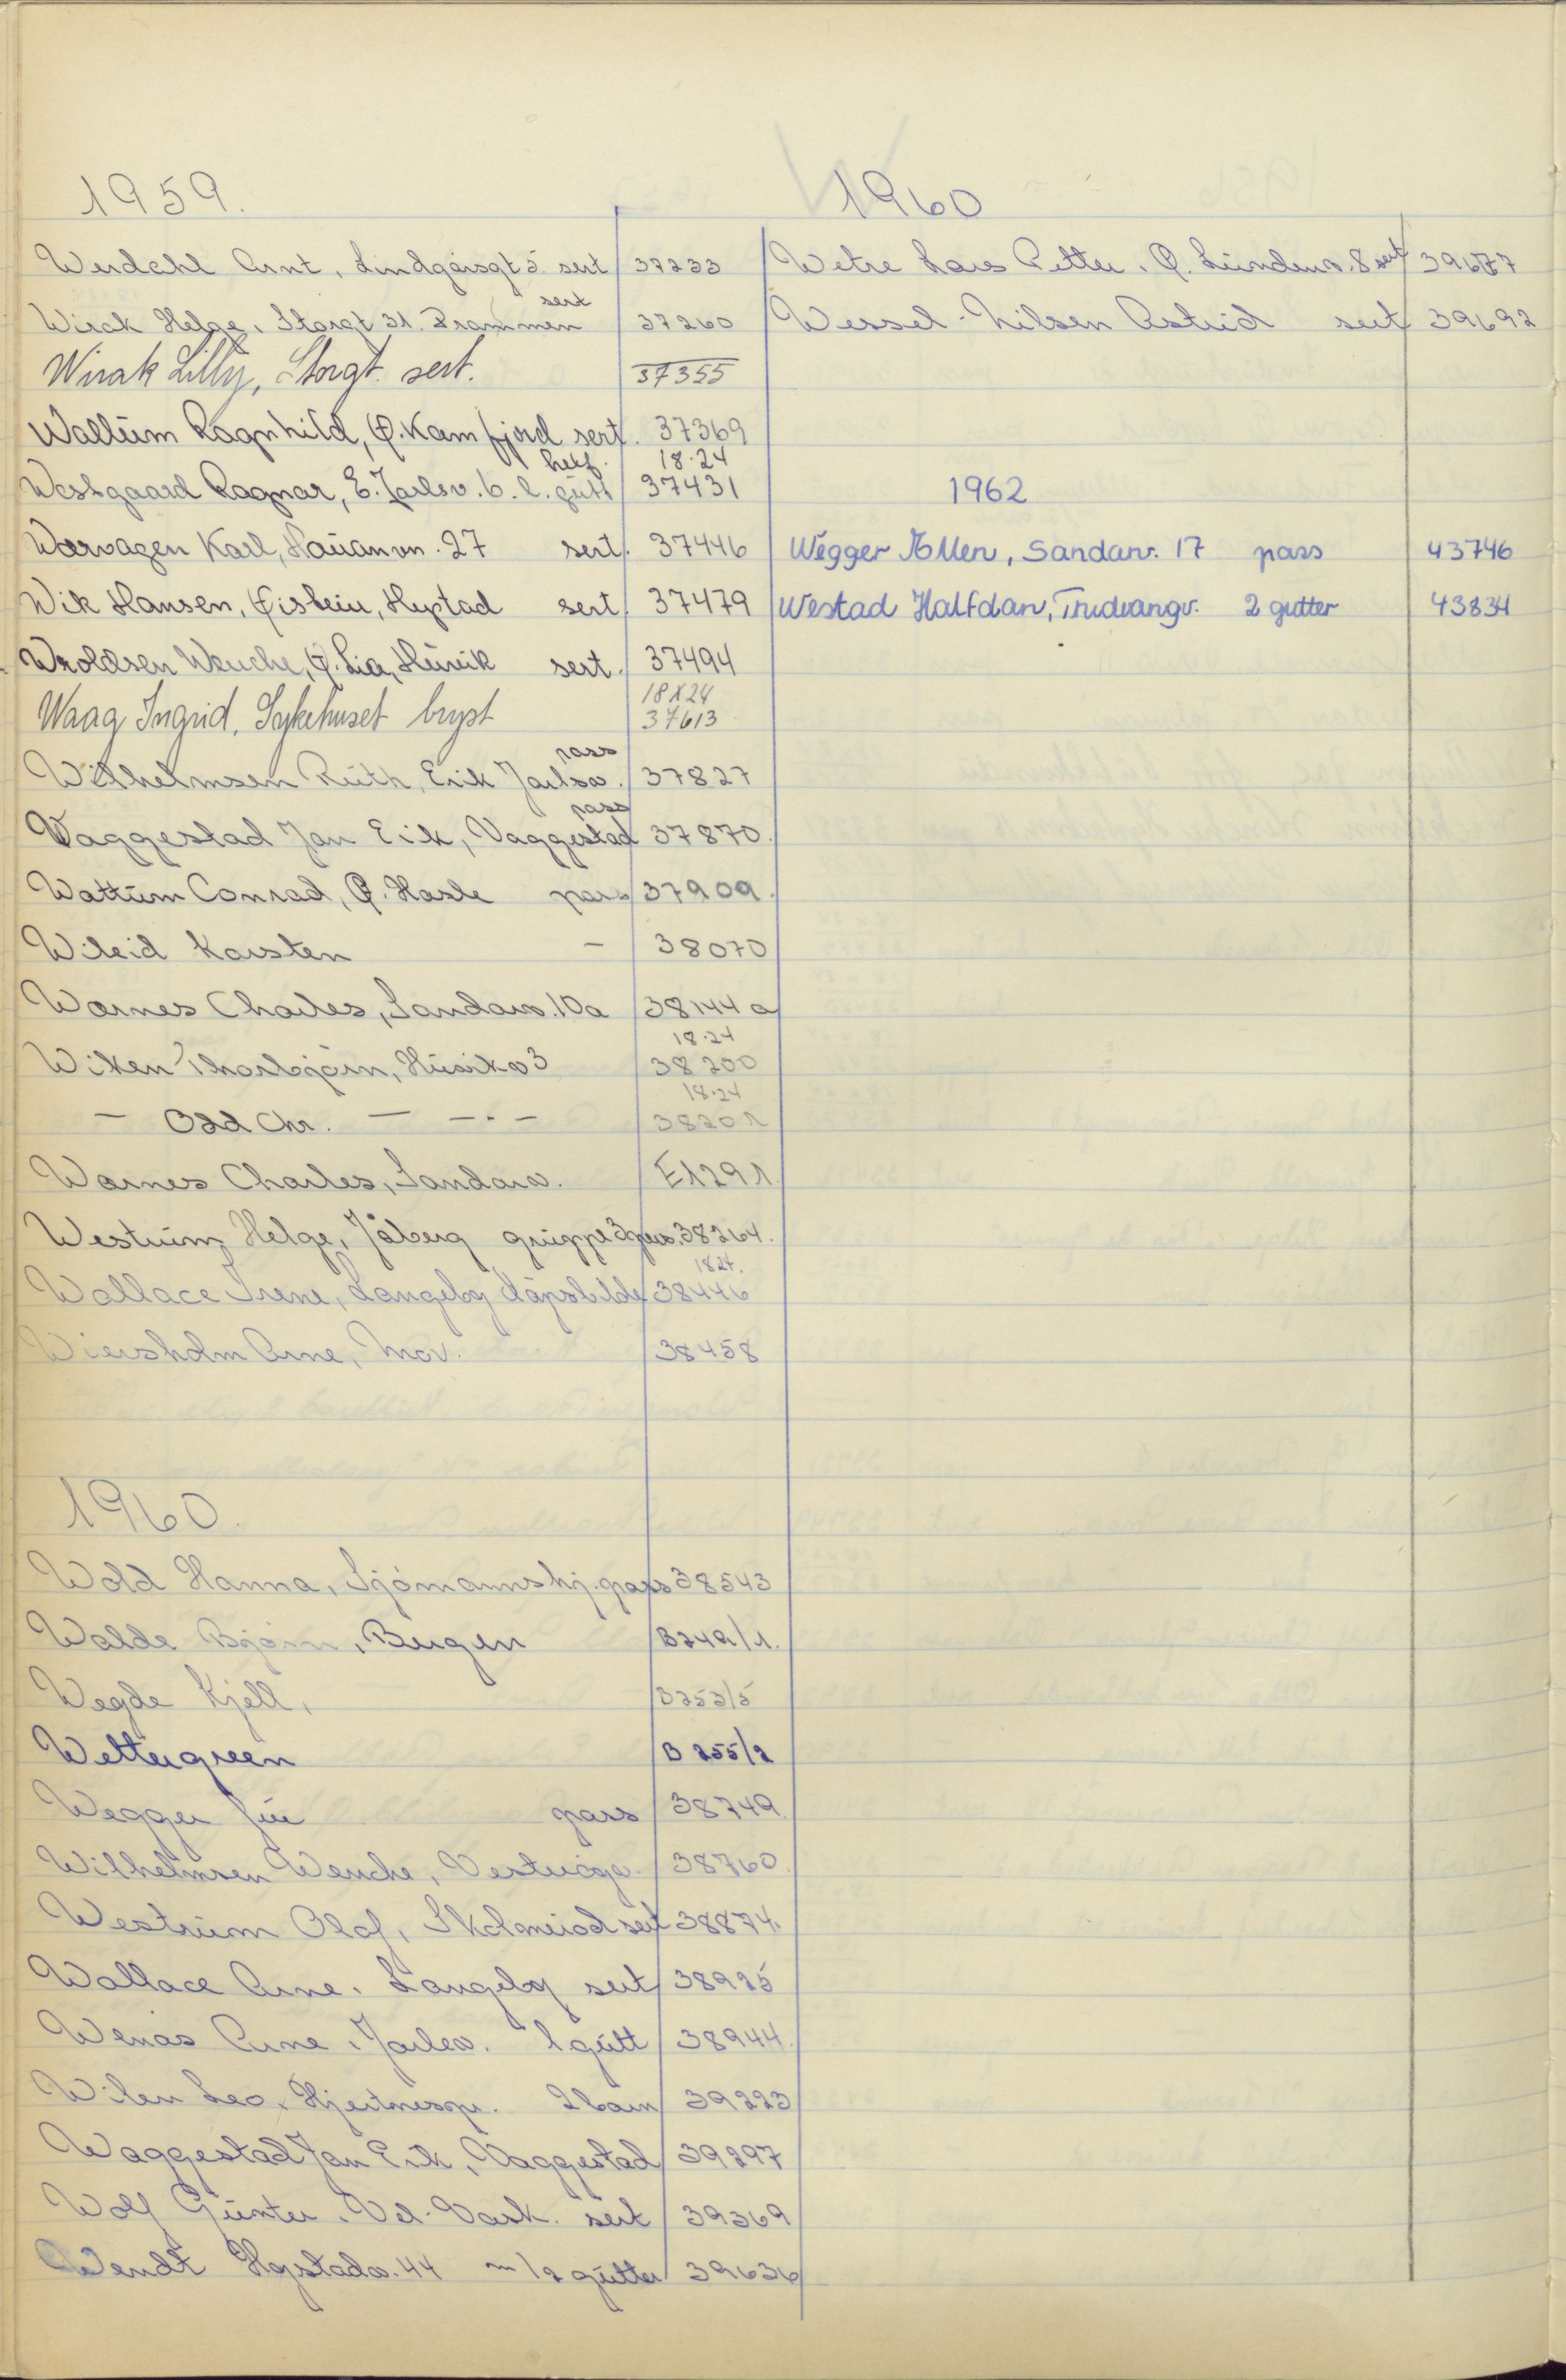 1959.
Werdahl Arnt, Lindgårsgt 5. sert 37233
sert
Wirak Helge, Storgt 31. Drammen 37260
Wirak Lilly, Storgt. sert. 37355
Wallum Ragnhild, Ø. Kamfjord sert. 37369
helf. 18.24
Westgaard Ragnar, E. Jarlsv. 6. l. gutt 37431
Wærvagen Karl, Hauanvn. 27 sert. 37446
Wik Hansen, Øistein, Hystad sert. 37479
Wroldsen Wenche, Ø. Lia, Hunik sert. 37494
18X24
Waag Ingrid, Sykehuset bryst 37613
pass
Wilhelmsen Ruth, Erik Jarlsv. 37827
pass
Waggestad Jan Erik, Vaggestad 37870.
Wattum Conrad, Ø. Hasle pass 37909.
Wileid Karsten — 38070
Warnes Charles, Sandarv. 10a 38144 a
18.24
Wiken Thorbjørn, Husikv 3 38200
18.24
— Odd Chr. — —.— 38201
Warnes Charles, Sandarv. E1291
Westrum, Helge, Jåberg gruppe 3 pers. 38264.
1824.
Wallace Irene, Langeby dåpsbilde 38446
Wiersholm Arne, Mov. 38458
1960.
Wold Hanna, Sjømannshj. pass 38543
Walde Bjørn, Bergen B249/1.
Wegde Kjell, B253/5
Wettergreen B 255/2
Wegger pass 38749.
Wilhelmsen Wenche, 38760.
Westrum Olaf, sert 38874.
Wallace Arne, Langeby sert 38925
Wenås Arne, Jarlsv. 1 gutt 38944.
Wilen Leo, Hjertnespr. 2 barn 39223
Waggestad Jan Erik, Vaggestad 39297
Wolf Günter, Vel-Vask. sert 39369
Wendt Hystadv. 44 m/2 gutter 39636
1960
Wetre Lars Petter, Ø. Lundenv. 8 sert 39677
Wessel-Nilsen Astrid sert 39692
1962
Wegger Ellen, Sandarv. 17 pass 43746
Westad Halfdan, Trudvangv. 2 gutter 43834